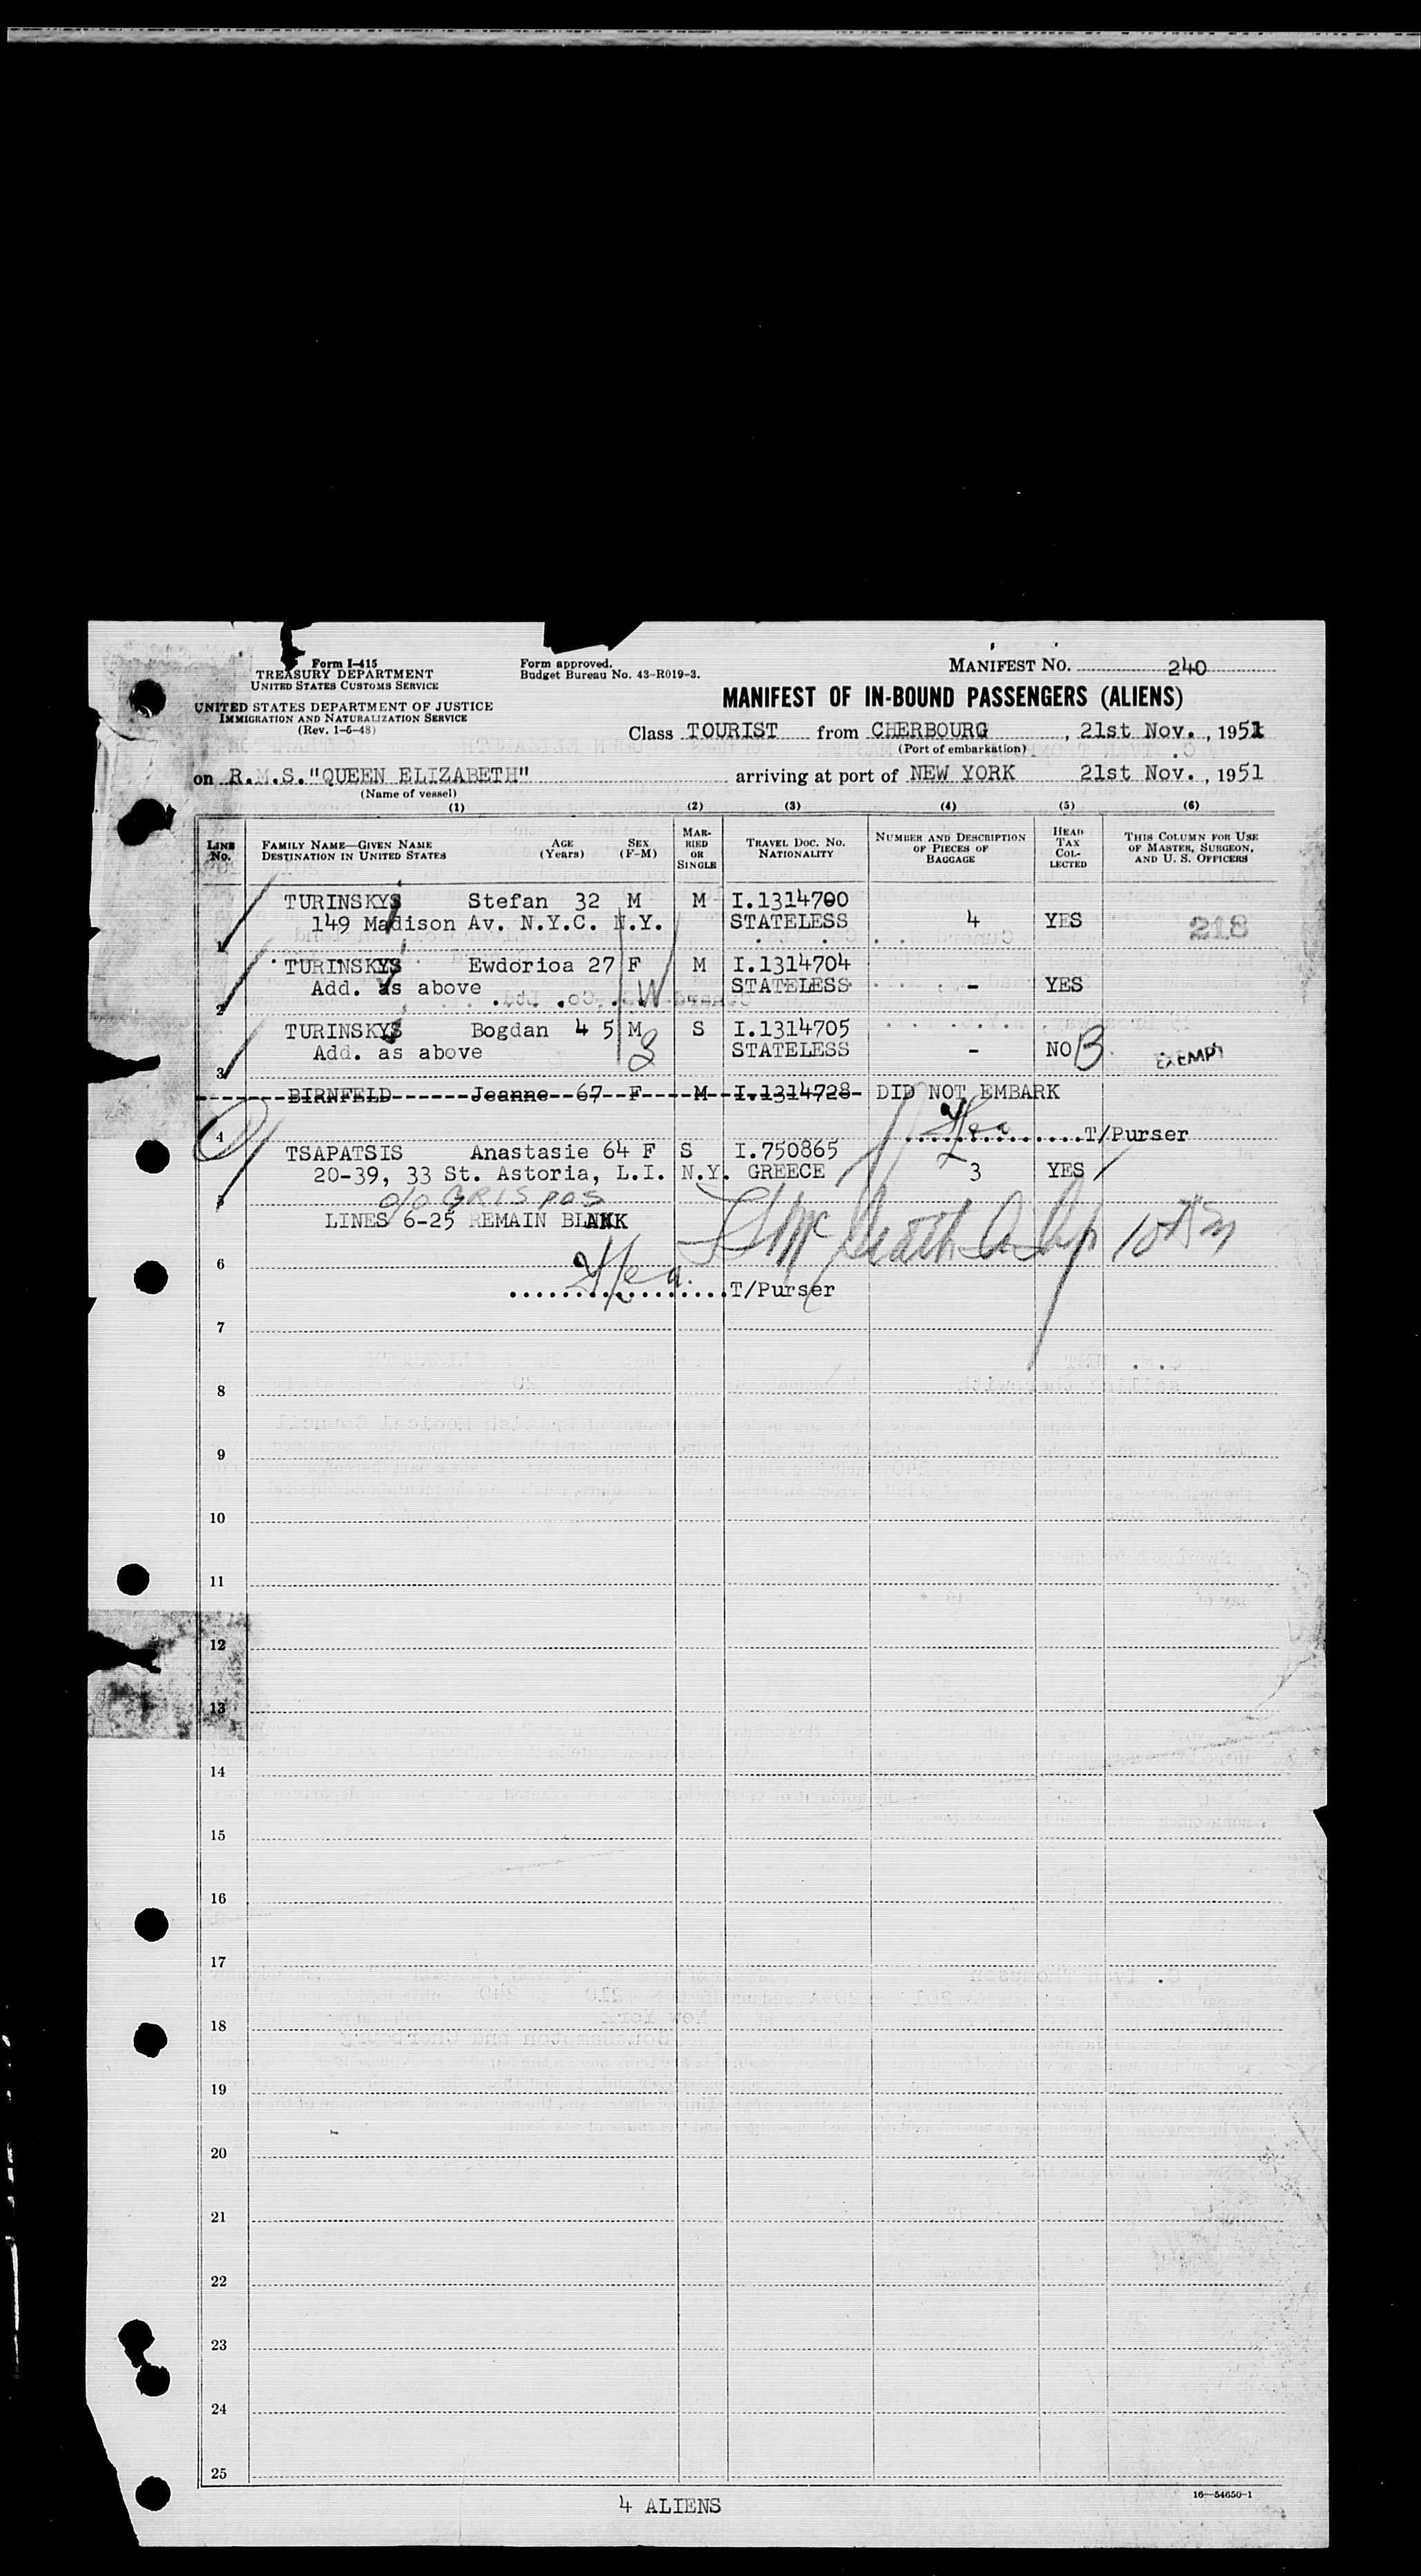 Form I-415
TREASURY DEPARTMENT
UNITED STATES CUSTOMS SERVICE
UNITED STATES DEPARTMENT OF JUSTICE
IMMIGRATION AND NATURALIZATION SERVICE
(Rev. 1-6-48)
Form approved.
Budget Bureau No. 43-R019-3.
MANIFEST NO. 240
MANIFEST OF IN-BOUND PASSENGERS (ALIENS)
Class TOURIST from CHERBOURG, 21st Nov., 1951
(Port of embarkation)
on R.M.S. "QUEEN ELIZABETH" arriving at port of NEW YORK 21st Nov., 1951
(Name of vessel)
(1) (2) (3) (4) (5) (6)
LINE No. FAMILY NAME—GIVEN NAME DESTINATION IN UNITED STATES AGE (Years) SEX (F-M) MARRIED OR SINGLE TRAVEL DOC. NO. NATIONALITY NUMBER AND DESCRIPTION OF PIECES OF BAGGAGE HEAD TAX COLLECTED THIS COLUMN FOR USE OF MASTER, SURGEON, AND U. S. OFFICERS
TURINSKYS Stefan 32 M M I.1314700
1 149 Madison Av. N.Y.C. N.Y. STATELESS 4 YES 218
TURINSKYS Ewdorioa 27 F M I.1314704
2 Add. as above W STATELESS - YES
TURINSKYS Bogdan 4 5 M S I.1314705
3 Add. as above STATELESS - NO B EXEMPT
BIRNFELD Jeanne 67 F M I.1314728 DID NOT EMBARK
4 T/Purser
TSAPATSIS Anastasie 64 F S I.750865
20-39, 33 St. Astoria, L.I. N.Y. GREECE 3 YES
5 c/o GRISPOS
LINES 6-25 REMAIN BLANK
6
T/Purser
7
8
9
10
11
12
13
14
15
16
17
18
19
20
21
22
23
24
25
4 ALIENS
16—54650-1